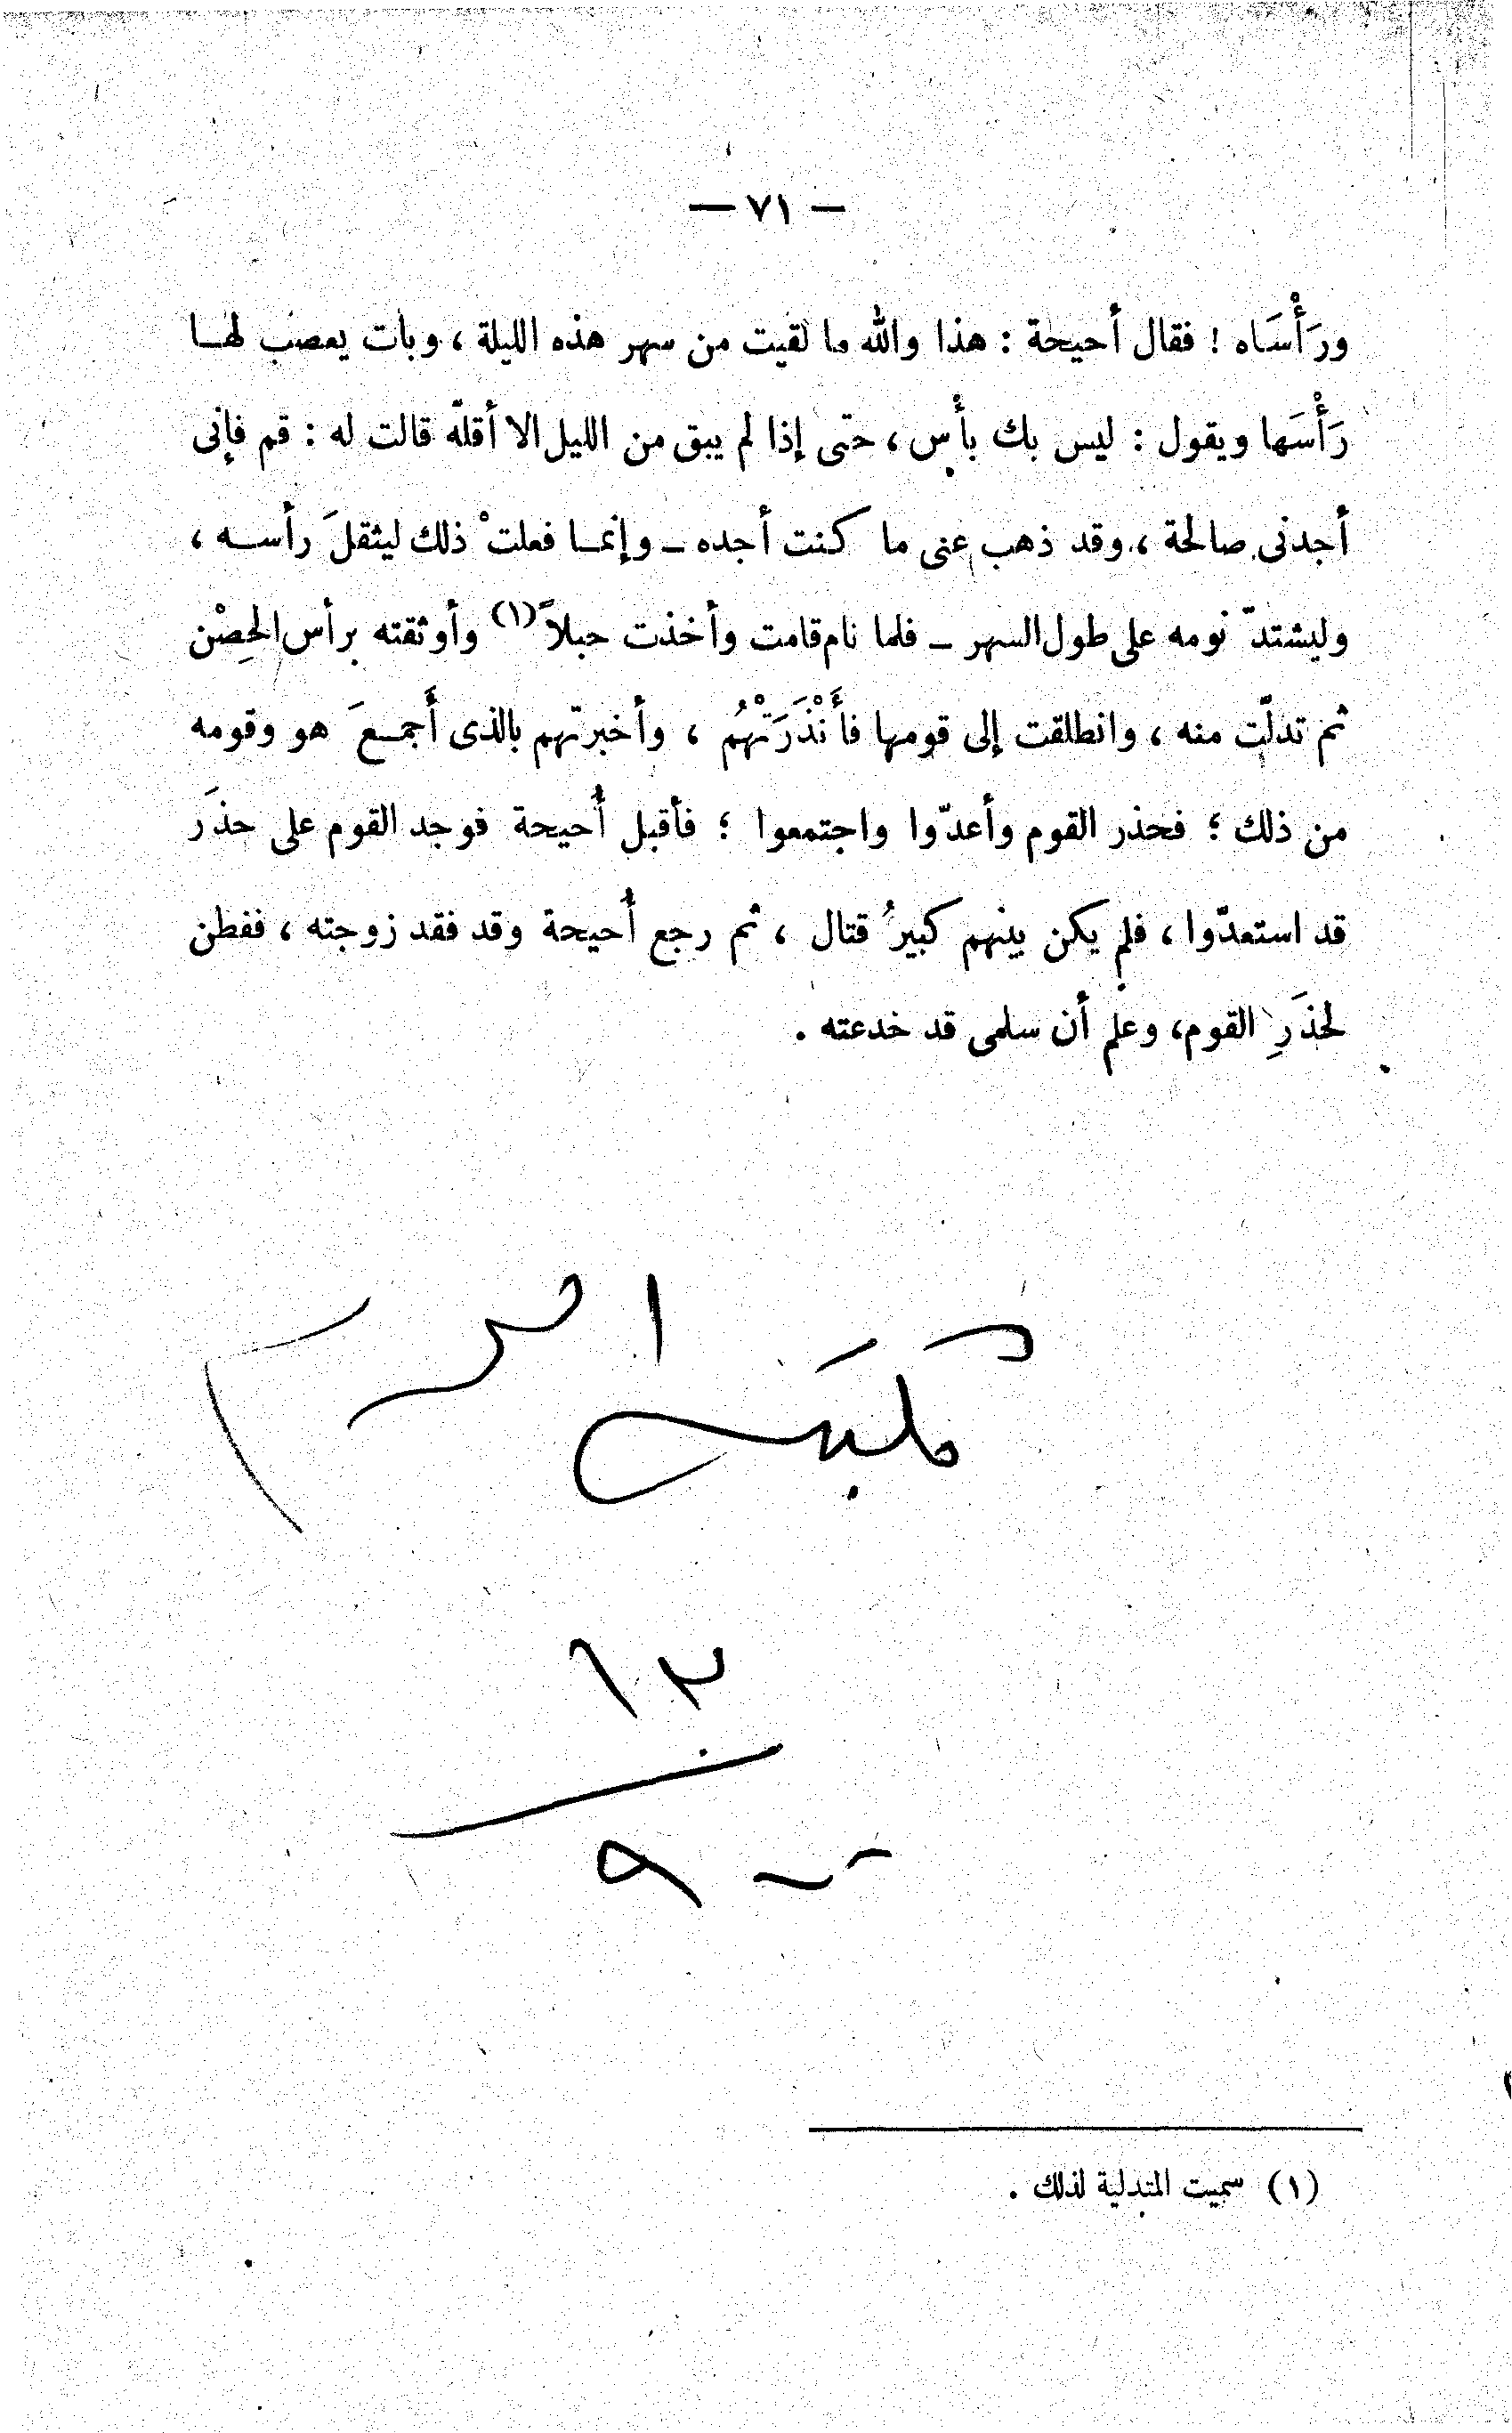 — ٧١ —
ورَأْسَاه ! فقال أحيحة : هذا والله ما لقيت من سهر هذه الليلة ، وبات يعصب لهـا
رَأْسَها ويقول : ليس بك بأْس ، حتى إذا لم يبق من الليل الا أقلّه قالت له : قم فإنى
أجدنى صالحة ، وقد ذهب عنى ما كنت أجده ـ وإنمـا فعلتْ ذلك ليثقلَ رأسـه ،
وليشتدّ نومه على طول السهر ـ فلما نام قامت وأخذت حبلاً (١) وأوثقته برأس الحِصْن
ثم تدلّت منه ، وانطلقت إلى قومها فأَنْذَرَتْهُم ، وأخبرتهم بالذى أَجمـعَ هو وقومه
من ذلك ؛ فحذر القوم وأعدّوا واجتمعوا ؛ فأقبل أُحيحة فوجد القوم على حذَر
قد استعدّوا ، فلم يكن بينهم كبيرُ قتال ، ثم رجع أُحيحة وقد فقد زوجته ، ففطن
لحذَرِ القوم، وعلم أن سلمى قد خدعته .
(١) سميت المتدلية لذلك .